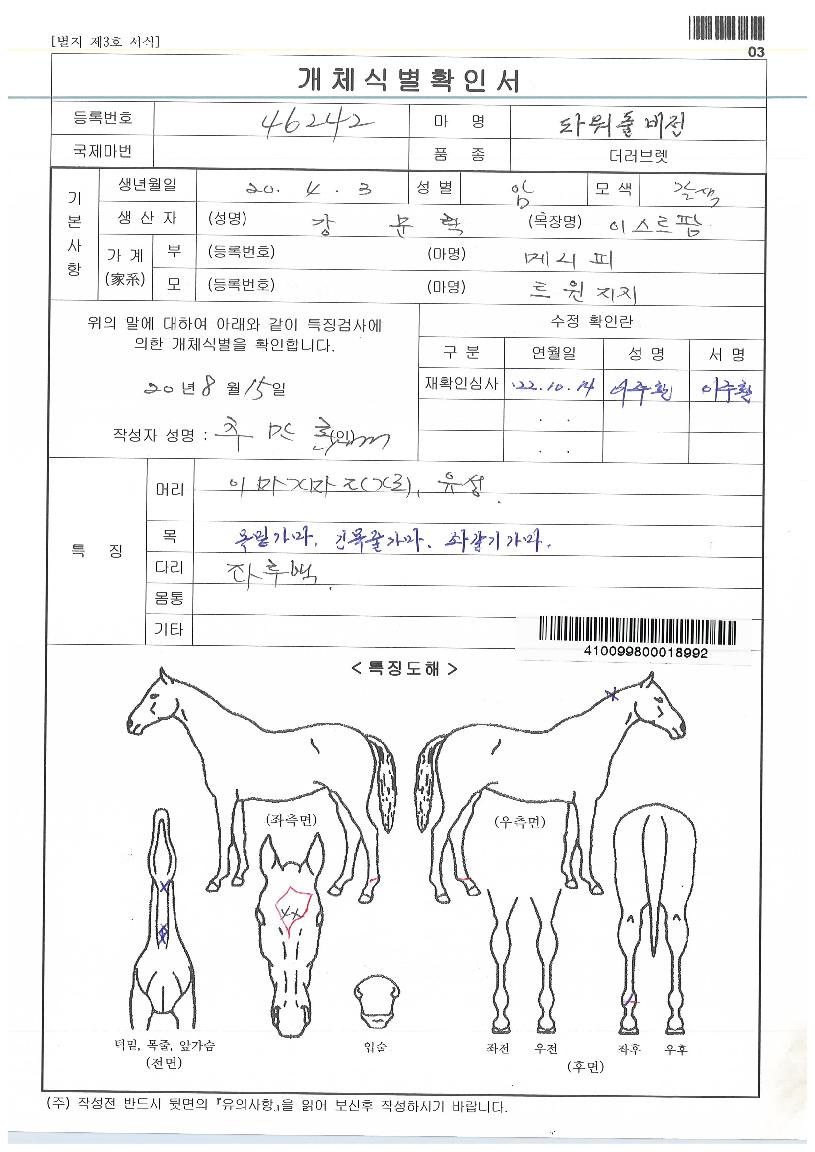 [별지 제3호 서식]
03
개체식별확인서
등록번호 46242 마 명 파워풀비전
국제마번 품 종 더러브렛
기본사항
생년월일 20. 4. 3 성별 암 모색 갈색
생산자 (성명) 강 문 (목장명) 이스트팜
가계 (家系) 부 (등록번호) (마명) 메니피
모 (등록번호) (마명) 트윈지지
위의 말에 대하여 아래와 같이 특징검사에
의한 개체식별을 확인합니다.
20년 8월 15일
작성자 성명 : (인)
수정 확인란
구 분 연월일 성 명 서 명
재확인심사 '22. 10. 14 이주환 이주환
. .
. .
특 징
머리 이마지마 유성.
목 목밑가마. 긴목줄가마. 좌갈기가마.
다리 좌후백.
몸통
기타
410099800018992
< 특징도해 >
(좌측면) (우측면)
턱밑, 목줄, 앞가슴
(전면)
입술
좌전 우전 좌후 우후
(후면)
(주) 작성전 반드시 뒷면의 『유의사항』을 읽어 보신후 작성하시기 바랍니다.